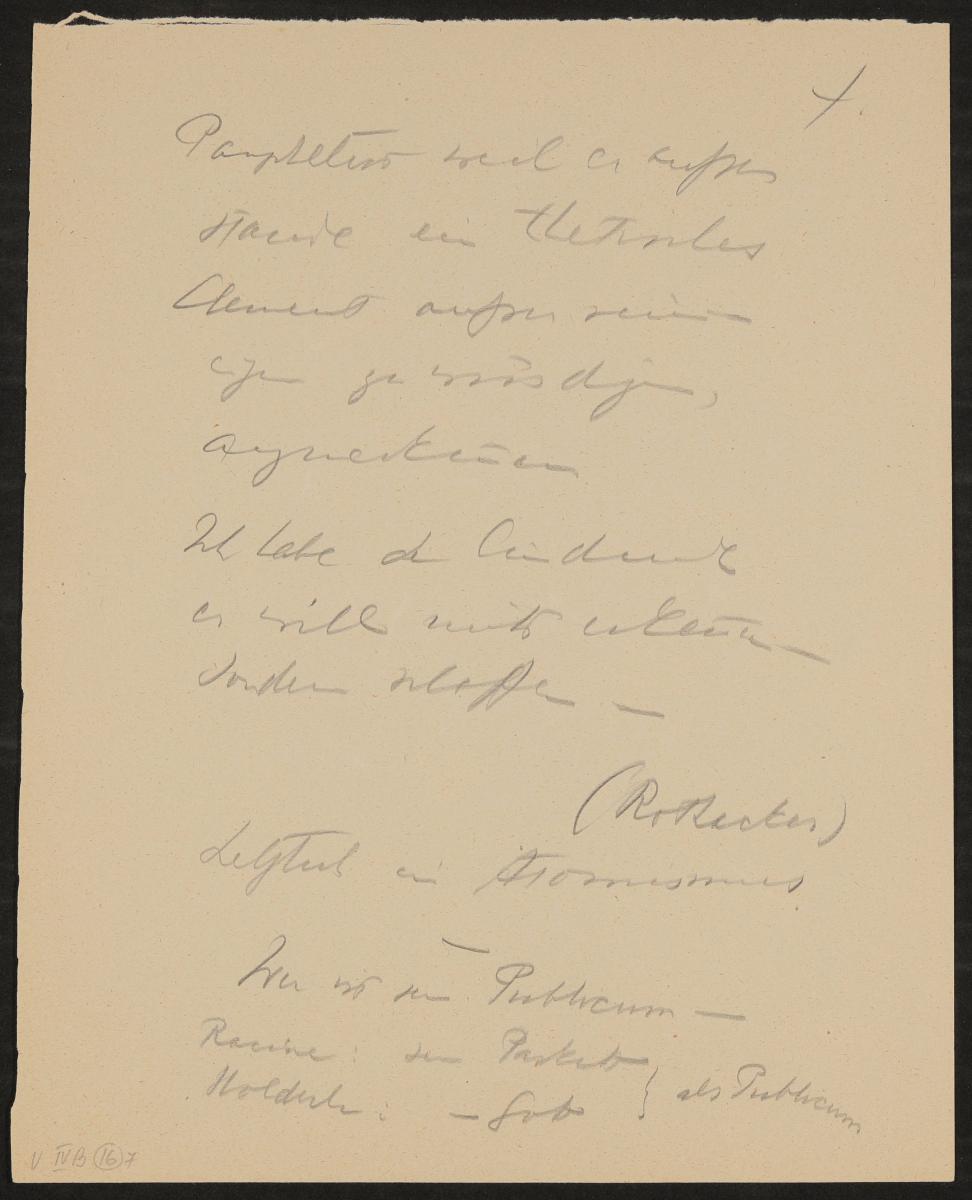 Pamphletist weil er außer
stande ein
Element außer seinem
eigen zu würdigen,
anzuerkennen
Ich habe den Eindruck
er will nicht erkennen —
sondern schaffen —
(Rothacker)
Letztlich ein Atomismus
Wer ist sein Publicum —
Racine: sein Parkett
Hölderlin: — Gott } als Publicum
V IV B (16) 7